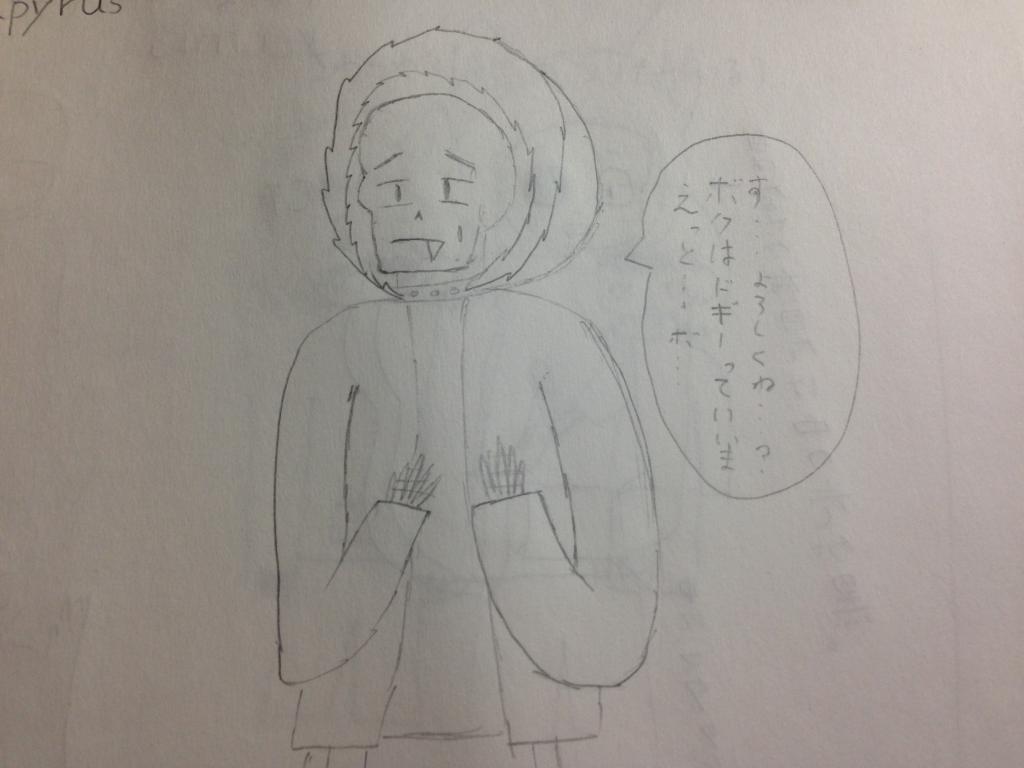 pyrus
えっと‥‥ボ‥
ボクはドギーっていいま
す‥よろしくね‥?